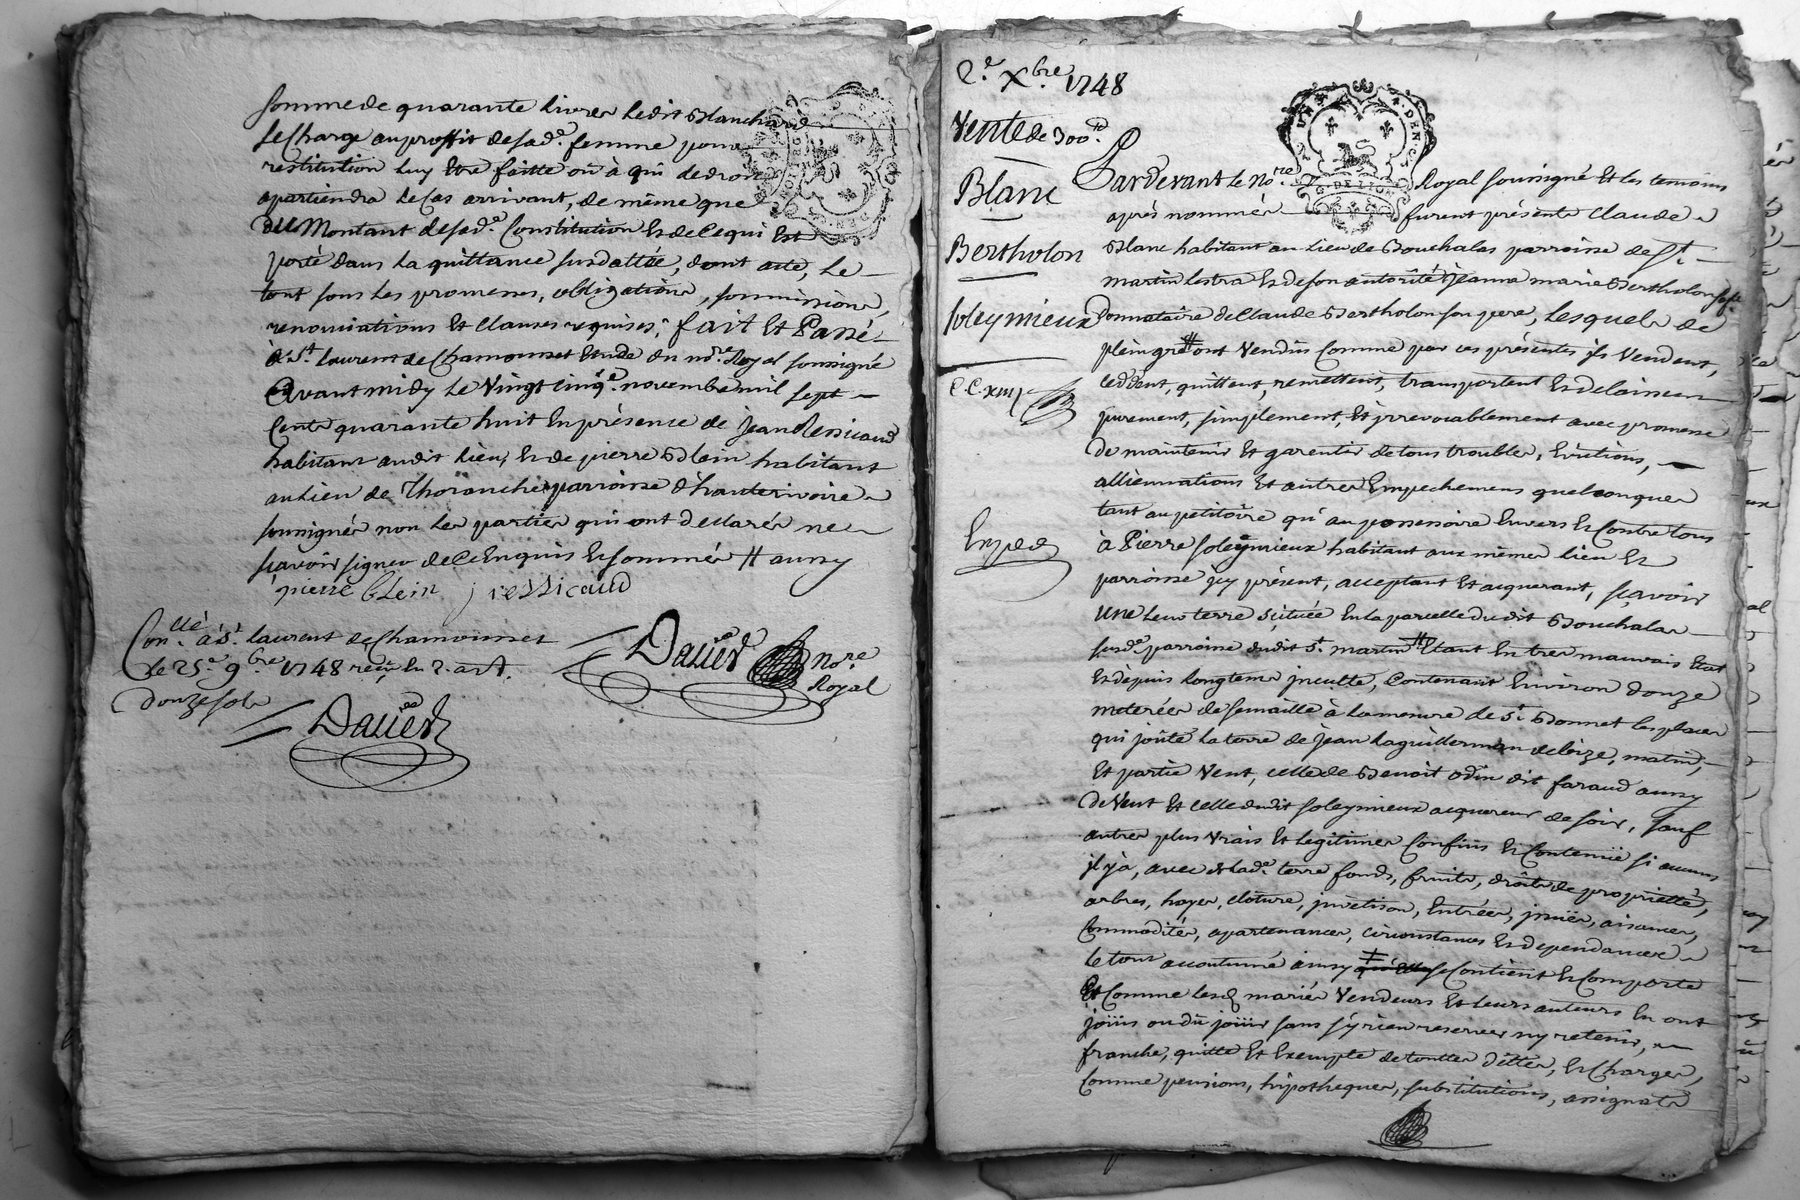 somme de quarante livres ledit Blanchard
se charge au proffit de sad.e femme pour
restitution luy Etre faitte ou à qui de droit
apartiendra le Cas arrivant, de même que
du Montant de sad.e Constitution Et de Ce qui Est
porté dans la quittance susdattée, dont acte, Le
tout sous les promesses, obligations, soumissions,
renonciations Et Clauses requises; fait Et Passé
à S.t Laurent de Chamousset Etude du no.re Royal soussigné
Avant midy le Vingt Cinq.e novembre mil sept
Cents quarante huit En présence de Jean Ressicaud
habitant audit Lieu, Et de pierre Blein habitant
au Lieu de Thoranche parroisse d'hauterivoire
soussignés non les parties qui ont déclarés ne
sçavoir signer de Ce Enquis Et sommés // aussy
pierre blein j ressicaud
Con.llé à S.t Laurent de Chamousset
le 25.e 9.bre 1748 reçu
douze sols
Dauier no.re
Royal
Dauier
2.e X.bre 1748
Vente de 300.#
Blanc
Bertholon
soleymieux
C. C. xiii
Exped
Pardevant Le No.re Royal soussigné Et les temoins
après nommés furent présents Claude
Blanc habitant au Lieu de Bouchalas parroisse de S.t
martin Lestra Et de son autorité Jeanne marie Bertholon sa fe.
Donnataire de Claude Bertholon son pere, Lesquels de
plein gré # ont Vendus Comme par ces présentes ils Vendent,
Ceddent, quittent, remettent, transportent Et delaissent
purement, simplement, Et irrevocablement avec promesse
de maintenir Et garentir de tous troubles, Evictions,
alliennations Et autres Empechemens quelconques
tant au petitoire qu'au possessoire Envers Et Contre tous
à Pierre soleymieux habitant aux mêmes Lieu Et
parroisse icy présent, acceptant Et acquerant, sçavoir
une Leur terre scituée En la parcelle dudit Bouchalas
susd.e parroisse dudit S.t martin # Etant En tres mauvais Etat
Et depuis longtems inculte, Contenant Environ douze
meterées de semaille à la mesure de S.t Bonnet les places
qui joûte la terre de Jean Laguillermon de bize, matin,
Et partie Vent, celle de Benoit odin dit faraud aussy
de Vent Et celle dudit soleymieux acquereur de soir, sauf
autres plus Vrais Et legitimes Confins Et Contenüe si aucuns
il y à, avec Lad.e terre fonds, fruits, droits de propriettés,
arbres, hayes, cloture, jnvetison, Entrées, jssües, aisances,
Commodités, apartenances, circonstances Et dependances
le tout accoutumé ainsy se Contient Et Comporte
Et Comme lesd. mariés Vendeurs Et leurs auteurs En ont
joüis ou dû joüir sans s'y rien reserver ny retenir,
franche, quitte Et Exempte de touttes dettes, Et Charges,
Comme pensions, hipotheques, substitutions, assignats